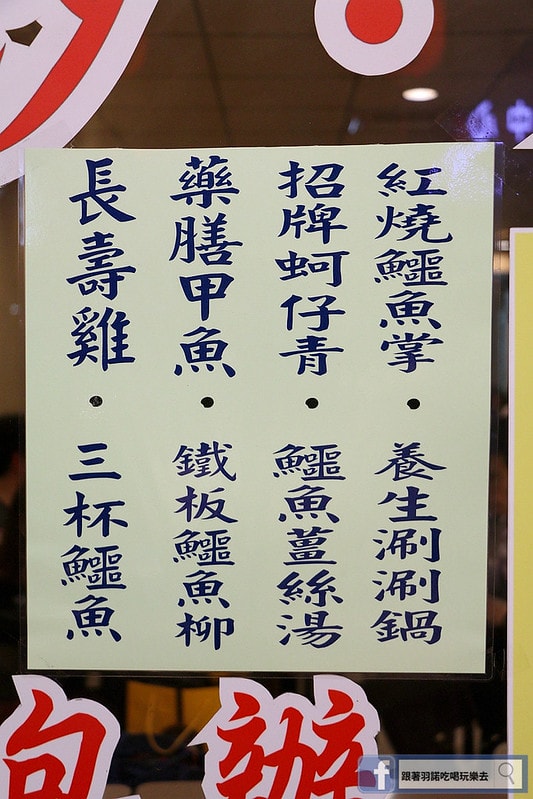 紅燒鱷魚掌・養生涮涮鍋
招牌蚵仔青・鱷魚薑絲湯
藥膳甲魚・鐵板鱷魚柳
長壽雞・三杯鱷魚
包辦
跟著羽諾吃喝玩樂去